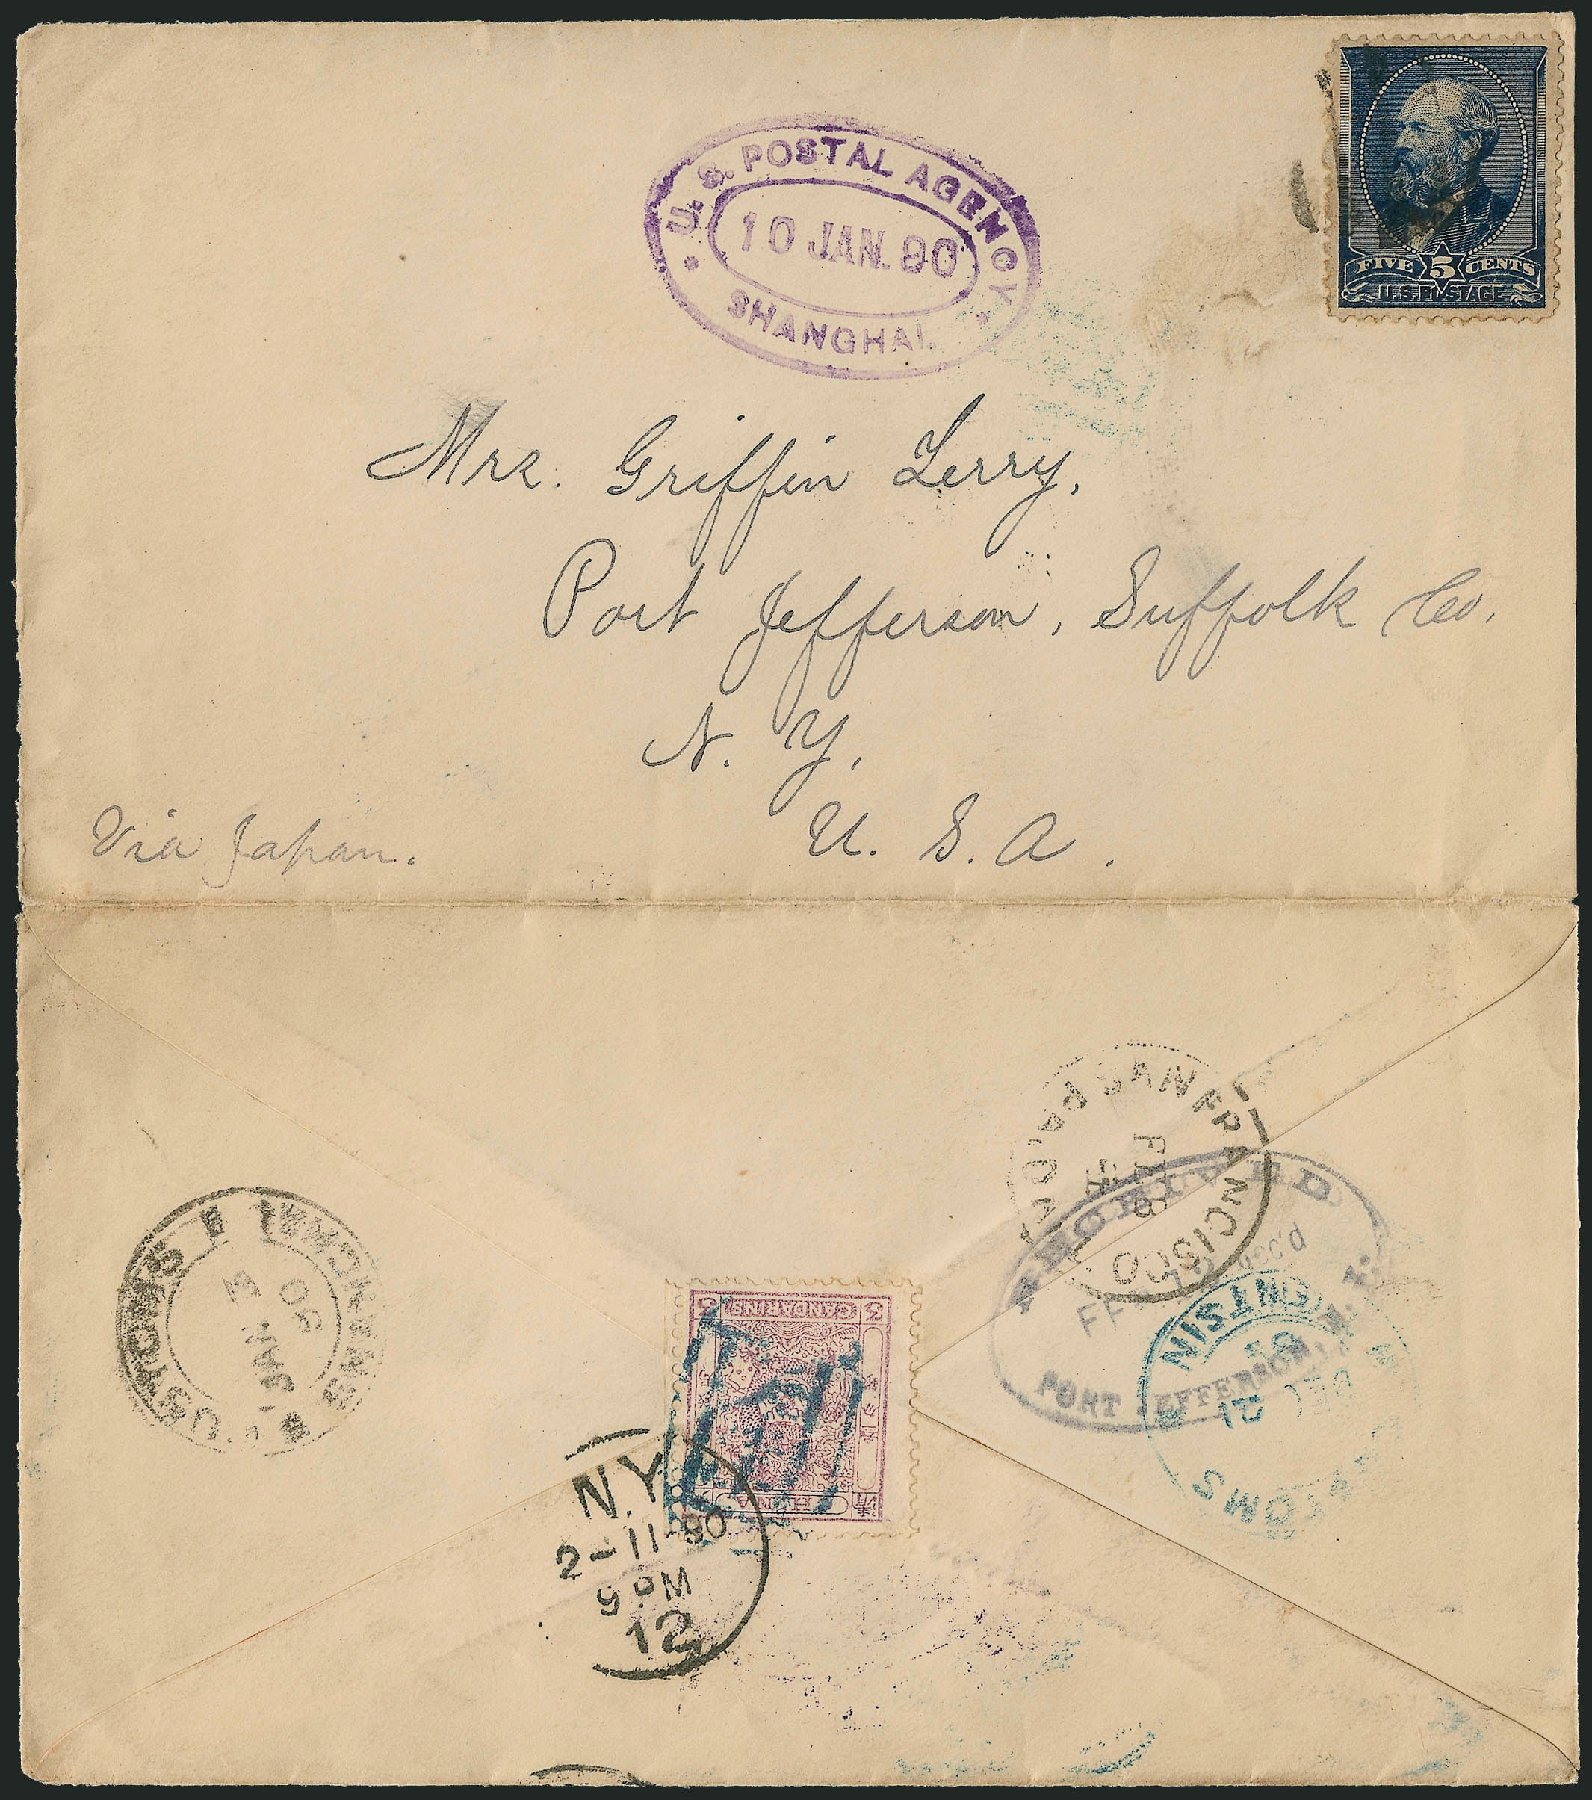 U. S. POSTAL AGENCY
10 JAN. 90
SHANGHAI.
FIVE 5 CENTS
U.S. POSTAGE
Mrs. Griffin Terry,
Port Jefferson, Suffolk Co.
N. Y.
U. S. A.
Via Japan.
SAN FRANCISCO
PAID ALL
RECEIVED
PORT JEFFERSON, N. Y.
CUSTOMS
SHANGHAI
JAN
90
CUSTOMS
TIENTSIN
12 DEC
89
3 CANDARINS 3
CHINA
N.Y.
2-11-90
9 PM
12